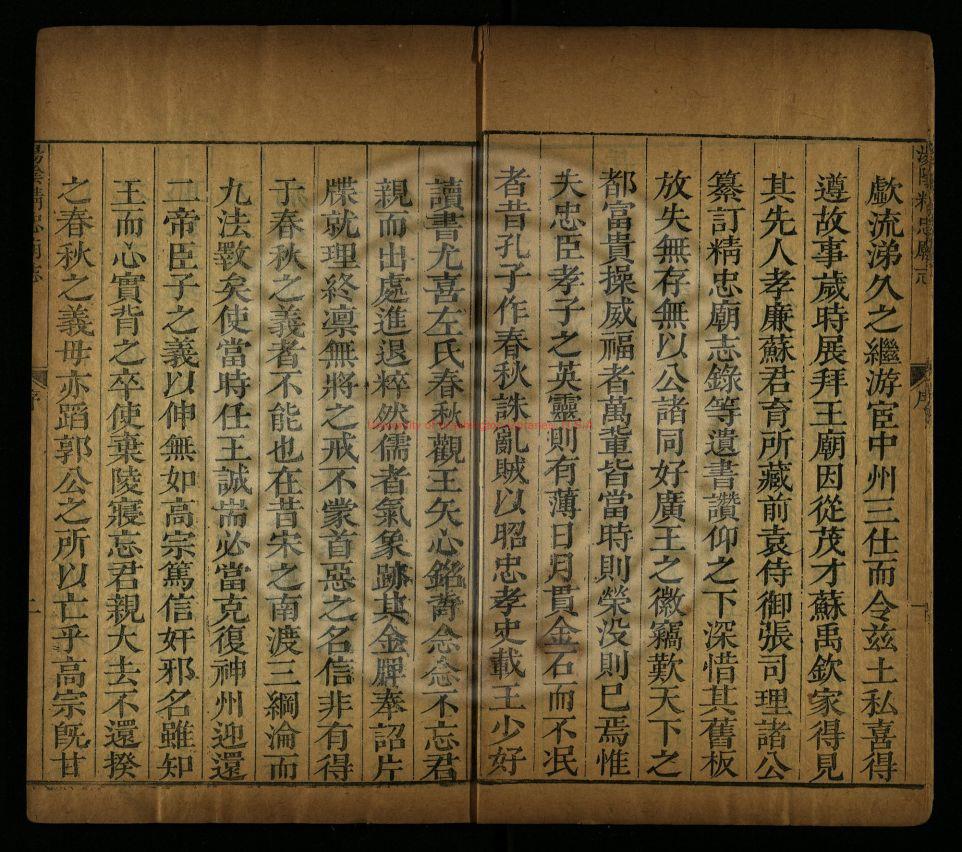 歔流涕久之繼游宦中州三仕而令茲土私喜得
遵故事歲時展拜王廟因從茂才蘇禹欽家得見
其先人孝廉蘇君育所藏前袁侍御張司理諸公
纂訂精忠廟志錄等遺書讚仰之下深惜其舊板
放失無存無以公諸同好廣王之徽竊歎天下之
都富貴操威福者萬輩皆當時則榮没則已焉惟
失忠臣孝子之英靈則有薄日月貫金石而不泯
者昔孔子作春秋誅亂賊以昭忠孝史載王少好
讀書尤喜左氏春秋觀王矢心銘膂念念不忘君
親而出處進退粹然儒者氣象跡其金牌奉詔片
牒就理終凛無將之戒不蒙首惡之名信非有得
于春秋之義者不能也在昔宋之南渡三綱淪而
九法斁矣使當時任王誠耑必當克復神州迎還
二帝臣子之義以伸無如高宗篤信奸邪名雖知
王而心實背之卒使棄陵寢忘君親大去不還揆
之春秋之義毋亦蹈郭公之所以亡乎高宗旣甘
湯陰精忠廟志
序
一
湯陰精忠廟志
序
二